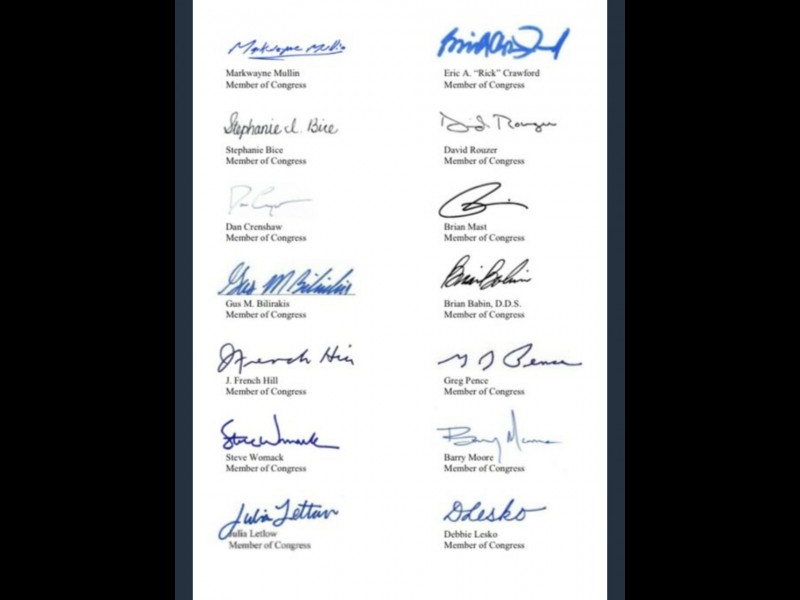 Markwayne Mullin
Markwayne Mullin
Member of Congress
Eric A. "Rick" Crawford
Member of Congress
Stephanie I. Bice
Stephanie Bice
Member of Congress
David Rouzer
David Rouzer
Member of Congress
Dan Crenshaw
Member of Congress
Brian Mast
Member of Congress
Gus M Bilirakis
Gus M. Bilirakis
Member of Congress
Brian Babin
Brian Babin, D.D.S.
Member of Congress
J. French Hill
J. French Hill
Member of Congress
Pence
Greg Pence
Member of Congress
Steve Womack
Steve Womack
Member of Congress
Barry Moore
Barry Moore
Member of Congress
Julia Letlow
Julia Letlow
Member of Congress
DLesko
Debbie Lesko
Member of Congress